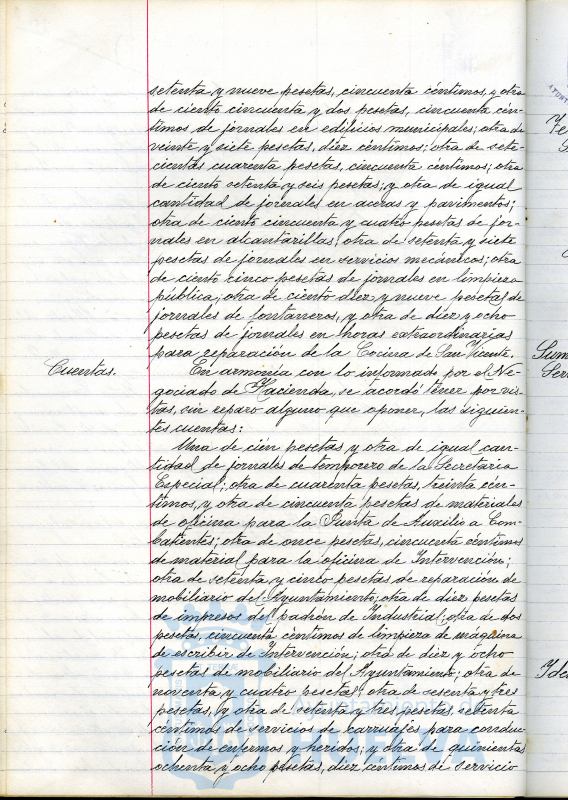 setenta y nueve pesetas, cincuenta céntimos, y otra
de ciento cincuenta y dos pesetas, cincuenta cén-
timos de jornales en edificios municipales; otra de
veinte y siete pesetas, diez céntimos; otra de sete-
cientas cuarenta pesetas, cincuenta céntimos; otra
de ciento setenta y seis pesetas; y otra de igual
cantidad de jornales en aceras y pavimentos;
otra de ciento cincuenta y cuatro pesetas de jor-
nales en alcantarillas; otra de setenta y siete
pesetas de jornales en servicios mecánicos; otra
de ciento cinco pesetas de jornales en limpieza
pública; otra de ciento diez y nueve pesetas de
jornales de fontaneros, y otra de diez y ocho
pesetas de jornales en horas extraordinarias
para reparación de la Cocina de San Vicente.
Cuentas.
En armonía con lo informado por el Ne-
gociado de Hacienda, se acordó tener por vis-
tas, sin reparo alguno que oponer, las siguien-
tes cuentas:
Una de cién pesetas y otra de igual can-
tidad de jornales de temporero de la Secretaria
Especial; otra de cuarenta pesetas, treinta cén-
timos, y otra de cincuenta pesetas de materiales
de oficina para la Junta de Auxilio a Com-
batientes; otra de once pesetas, cincuenta céntimos
de material para la oficina de Intervención;
otra de setenta y cinco pesetas de reparación de
mobiliario del Ayuntamiento; otra de diez pesetas
de impresos del padrón de Industrial; otra de dos
pesetas, cincuenta céntimos de limpieza de maquina
de escribir de Intervención; otra de diez y ocho
pesetas de mobiliario del Ayuntamiento; otra de
noventa y cuatro pesetas; otra de sesenta y tres
pesetas, y otra de setenta y tres pesetas setenta
céntimos de servicios de carruajes para conduc-
ción de enfermos y heridos; y otra de quinientas
ochenta y ocho pesetas, diez céntimos de servicio